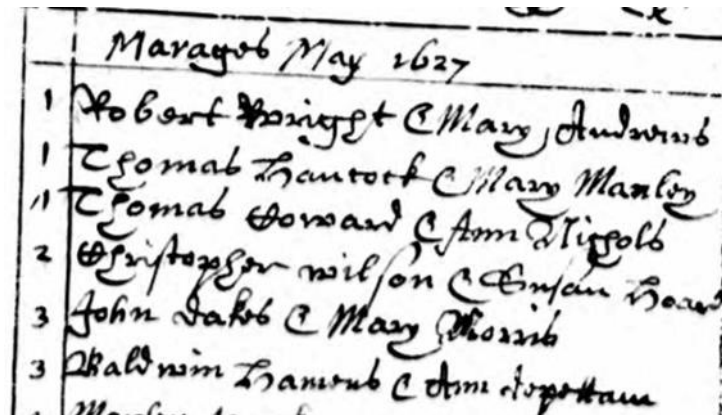 Marages May 1627
1 Robert Wright & Mary Andrewes
1 Thomas Hancock & Mary Manley
1 Thomas Howard & Ann Nichols
2 Christopher Wilson & Susan
3 John & Mary Morris
3 Baldwin & Ann